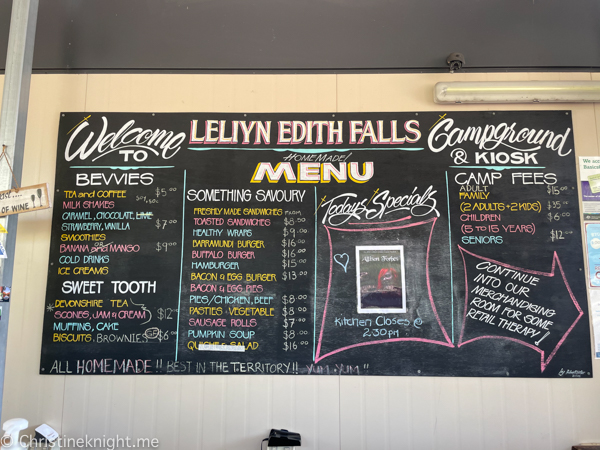 Welcome TO
LELIYN EDITH FALLS
Campground & KIOSK
BEVVIES
TEA and COFFEE $5.00
MILK SHAKES
CARAMEL, CHOCOLATE, LIME
STRAWBERRY, VANILLA $7.00
SMOOTHIES
BANANA OR MANGO $9.00
COLD DRINKS
ICE CREAMS
SWEET TOOTH
DEVONSHIRE TEA
SCONES, JAM & CREAM $12.00
MUFFINS, CAKE
BISCUITS, BROWNIES $6.00
HOMEMADE!
MENU
SOMETHING SAVOURY
FRESHLY MADE SANDWICHES FROM
TOASTED SANDWICHES $8.50
HEALTHY WRAPS $9.00
BARRAMUNDI BURGER $16.00
BUFFALO BURGER $16.00
HAMBURGER $15.00
BACON & EGG BURGER $13.00
BACON & EGG PIES
PIES/CHICKEN, BEEF $8.00
PASTIES VEGETABLE $8.00
SAUSAGE ROLLS $7.00
PUMPKIN SOUP $8.00
QUICHE & SALAD $16.00
Todays Specials
Kitchen Closes @
2:30 pm
CAMP FEES
ADULT $15.00
FAMILY
(2 ADULTS + 2 KIDS) $35.00
CHILDREN $6.00
(5 TO 15 YEARS)
SENIORS $12.00
CONTINUE
INTO OUR
MERCHANDISING
ROOM FOR SOME
RETAIL THERAPY!
ALL HOMEMADE!! BEST IN THE TERRITORY!! YUM YUM"
OF WINE
© Christineknight.me